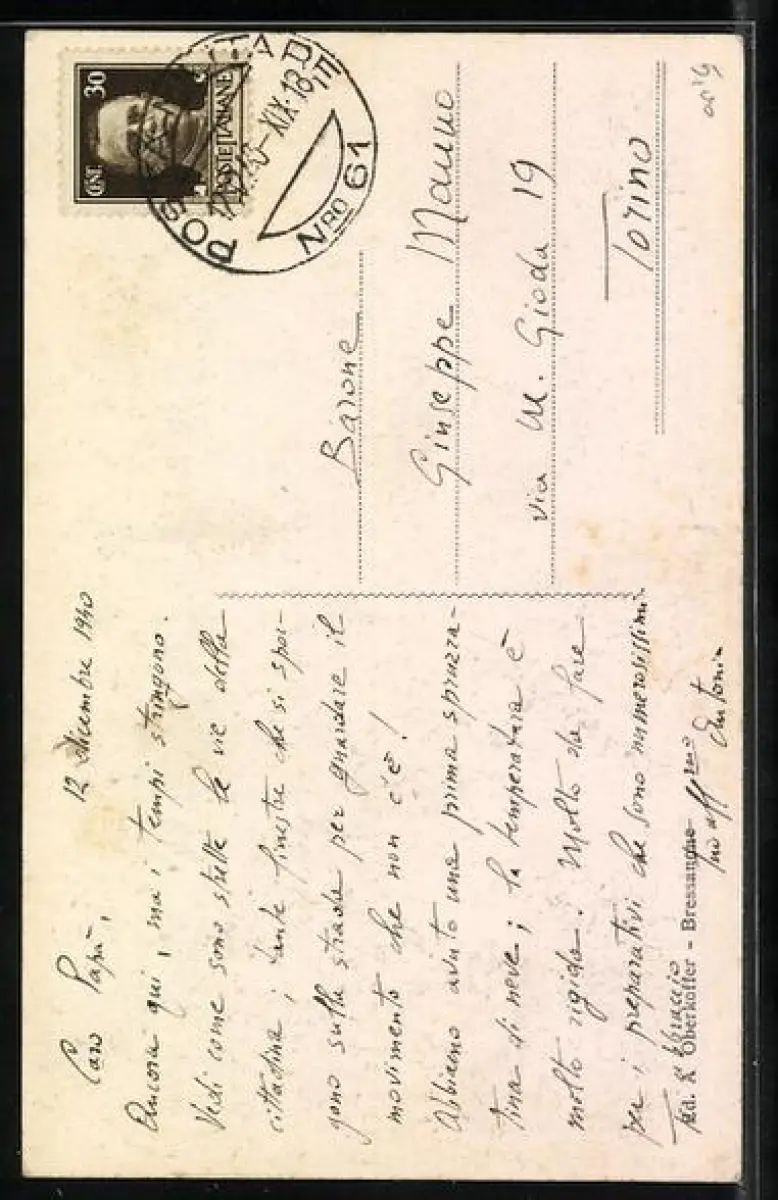 12 Dicembre 1940
Caro Papà,
Ancora qui, ma i tempi stringono.
Vedi come sono strette le vie della
cittadina; tante finestre che si spor-
gono sulla strada per guardare il
movimento che non c'è!
Abbiamo avuto una prima spruzza-
tina di neve; la temperatura è
molto rigida. Molto da fare
per i preparativi che sono numerosissimi.
T'abbraccio
tuo aff.mo
Antonio
Ed. K. Oberkofler - Bressanone
Barone
Giuseppe Manno
Via M. Gioda 19
Torino
POSTA
NRO 61
XIX·18
30
CENT
POSTE ITALIANE